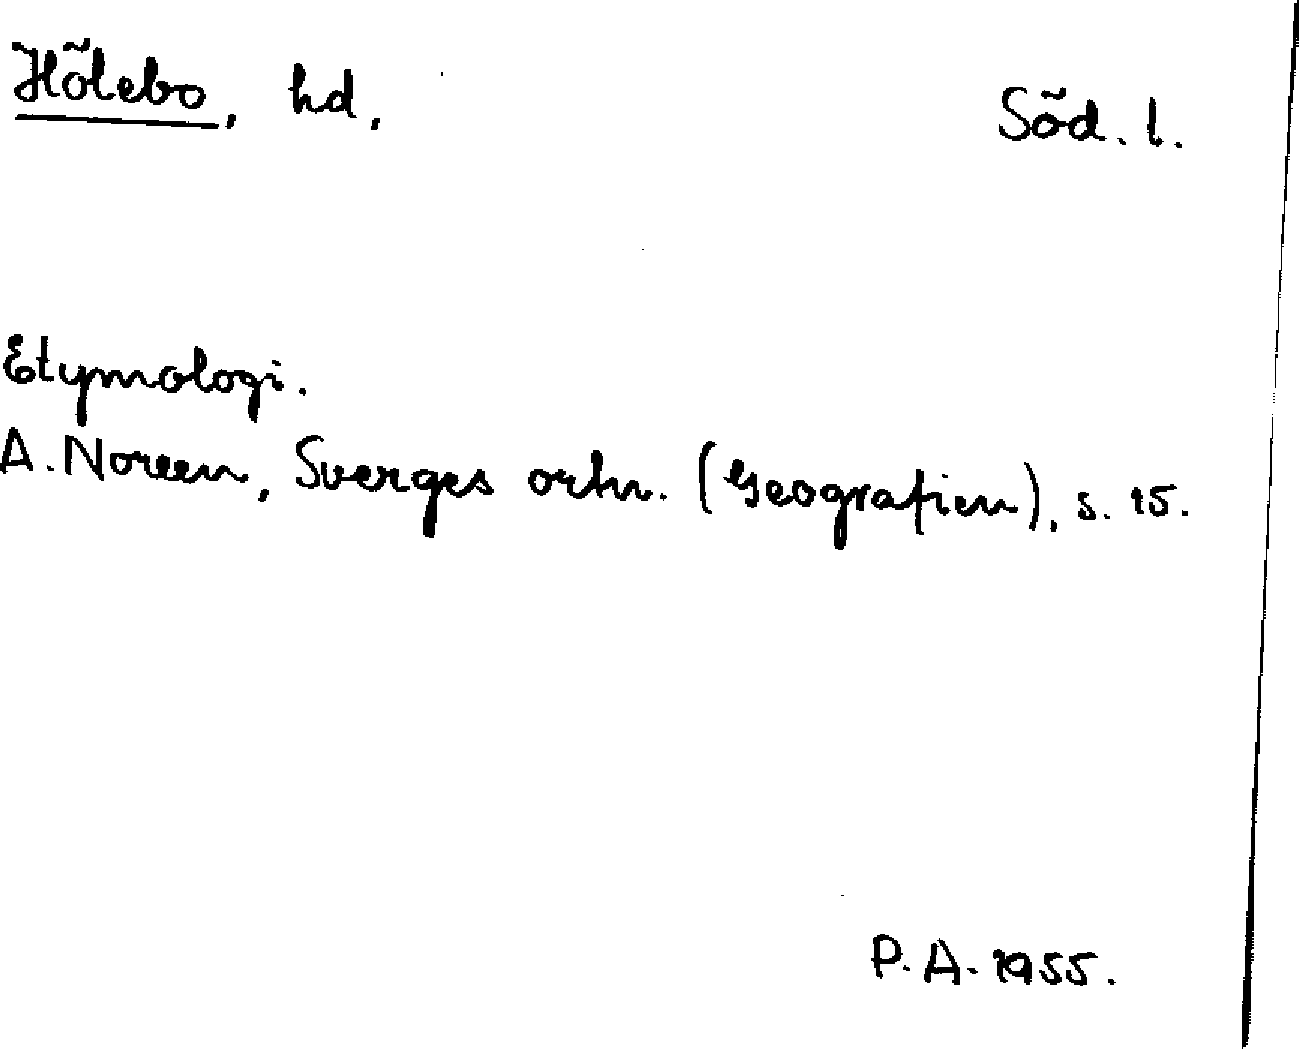 Hölebo, hd. Söd. l.
Etymologi.
A. Noreen, Sverges ortn. (Geografien), s. 15.
P. A. 1955.